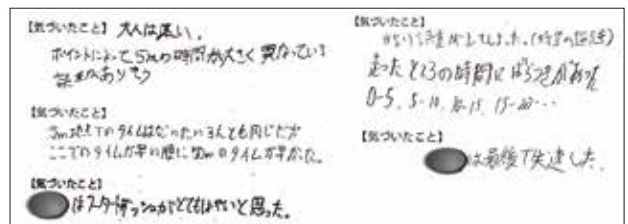 【気づいたこと】 大人は速い。
ポイントによって5mの時間が大きく異なっている
【気づいたこと】
5m地点でのタイムはだいたい3人とも同じだが
ここでのタイムが早い順に50mのタイムが早かった。
【気づいたこと】
はスタートダッシュがとてもはやいと思った。
【気づいたこと】
走ったところの時間にばらつきがあった
0-5、5-10、10-15、15-20…
【気づいたこと】
は最後で失速した。